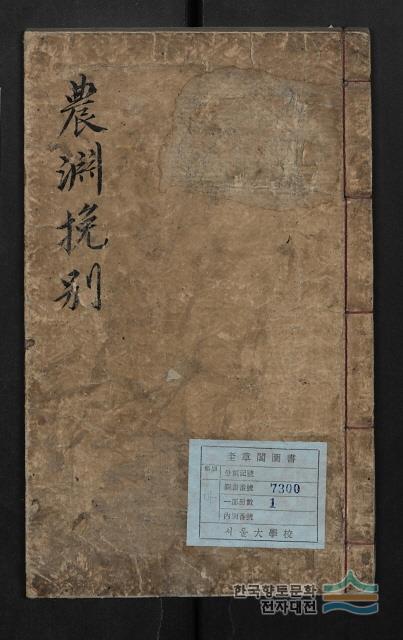 農淵挽别
奎章閣圖書
圖書番號 7300
一部冊數 1
內
서울大學校
한국향토문화
전자대전